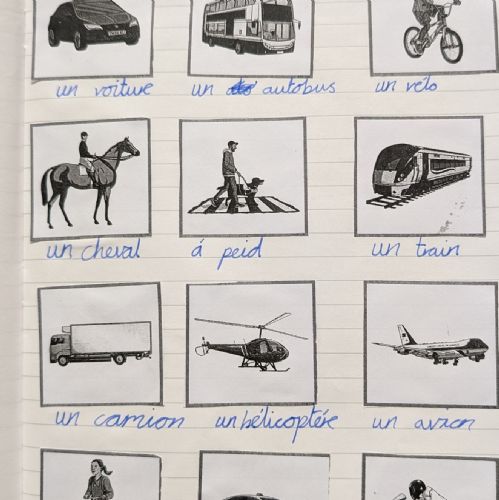 un voiture un autobus un vélo
un cheval á peid un train
un camion un hélicoptére un avion